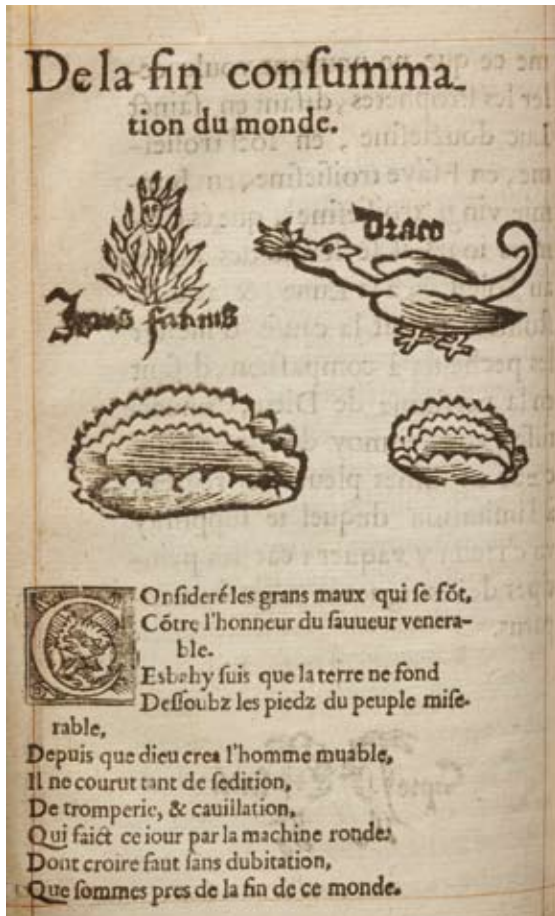 De la fin conſumma-
tion du monde.
Draco
Ignis fatuus
COnſideré les grans maux qui ſe fõt,
Cõtre l'honneur du ſauueur venera-
ble.
Esbahy ſuis que la terre ne fond
Deſſoubz les piedz du peuple miſe-
rable,
Depuis que dieu crea l'homme muable,
Il ne courut tant de ſedition,
De tromperie, & cauillation,
Qui faict ce iour par la machine ronde:
Dont croire faut ſans dubitation,
Que ſommes pres de la fin de ce monde.